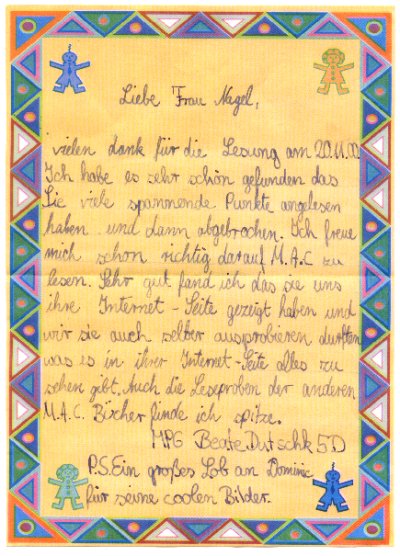 Liebe Frau Nagel,
vielen dank für die Lesung am 20.11.00.
Ich habe es sehr schön gefunden das
Sie viele spannende Punkte angelesen
haben und dann abgebrochen. Ich freue
mich schon richtig darauf M.A.C zu
lesen. Sehr gut fand ich das sie uns
ihre Internet-Seite gezeigt haben und
wir sie auch selber ausprobieren durften
was es in ihrer Internet-Seite alles zu
sehen gibt. Auch die Leseproben der anderen
M.A.C. Bücher finde ich spitze.
MPG Beate 5D
P.S. Ein großes Lob an Dominic
für seine coolen Bilder.